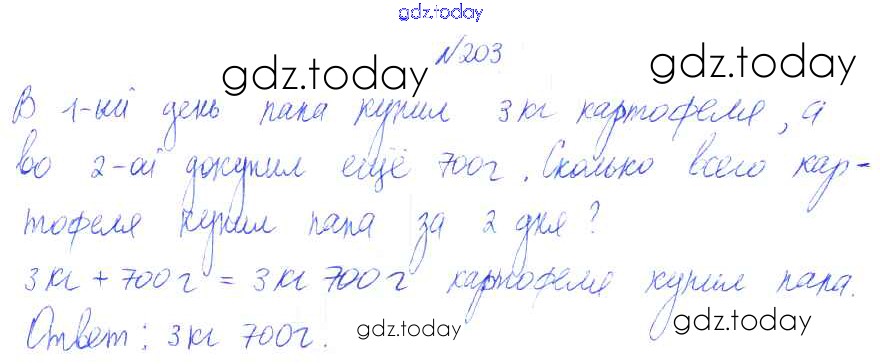 gdz.today
№203
gdz.today gdz.today
В 1-ый день папа купил 3кг картофеля, а
во 2-ой докупил ещё 700г. Сколько всего кар-
тофеля купил папа за 2 дня?
3кг + 700г = 3кг 700г картофеля купил папа.
Ответ: 3кг 700г.
gdz.today gdz.today